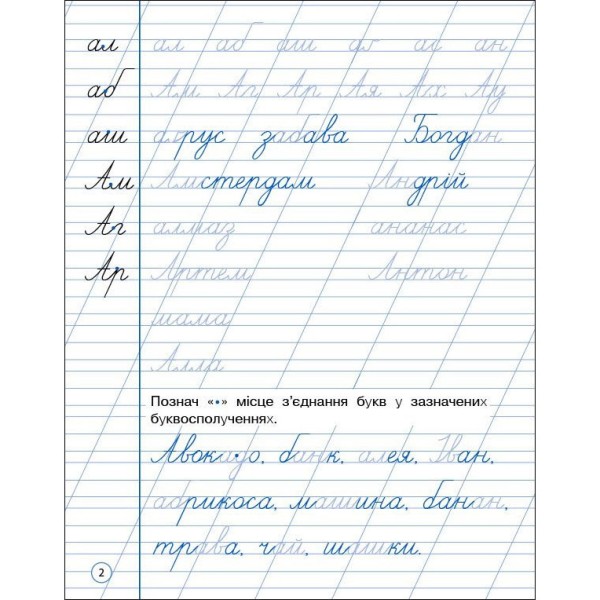 ал ал аб аш ас ан
аб Ам Аг Ар Ая Ах Ау
аш агрус забава Богдан
Ам Амстердам Андрій
Аг алмаз ананас
Ар Артем Антон
Алла
Познач «•» місце з’єднання букв у зазначених
буквосполученнях.
Авокадо, банк, алея, Іван,
абрикоса, машина, банан,
трава, чай, шашки.
2